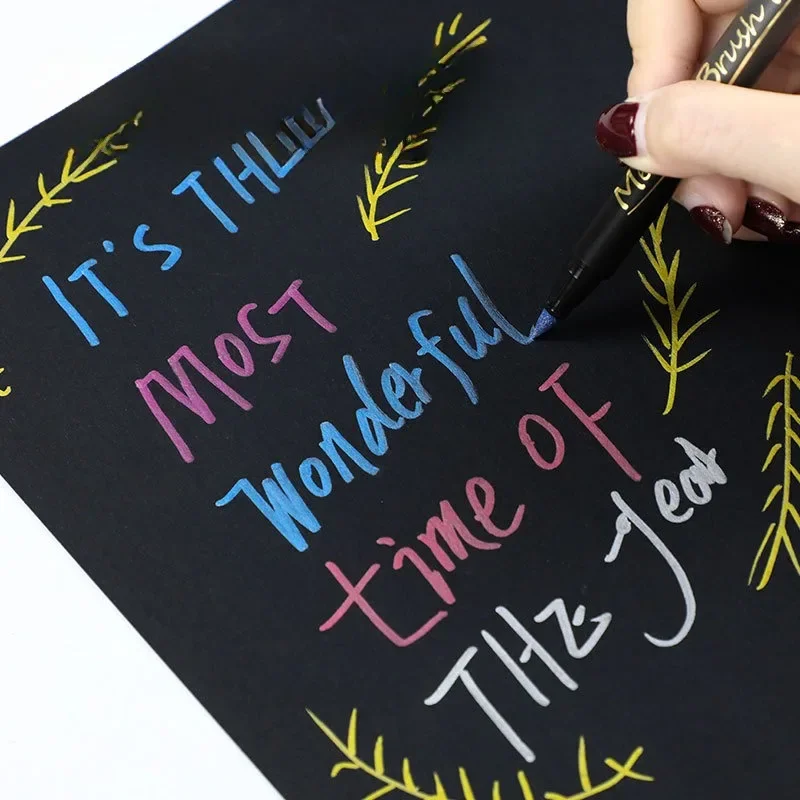 IT'S THE
MOST
Wonderful
time OF
THE year
Brush